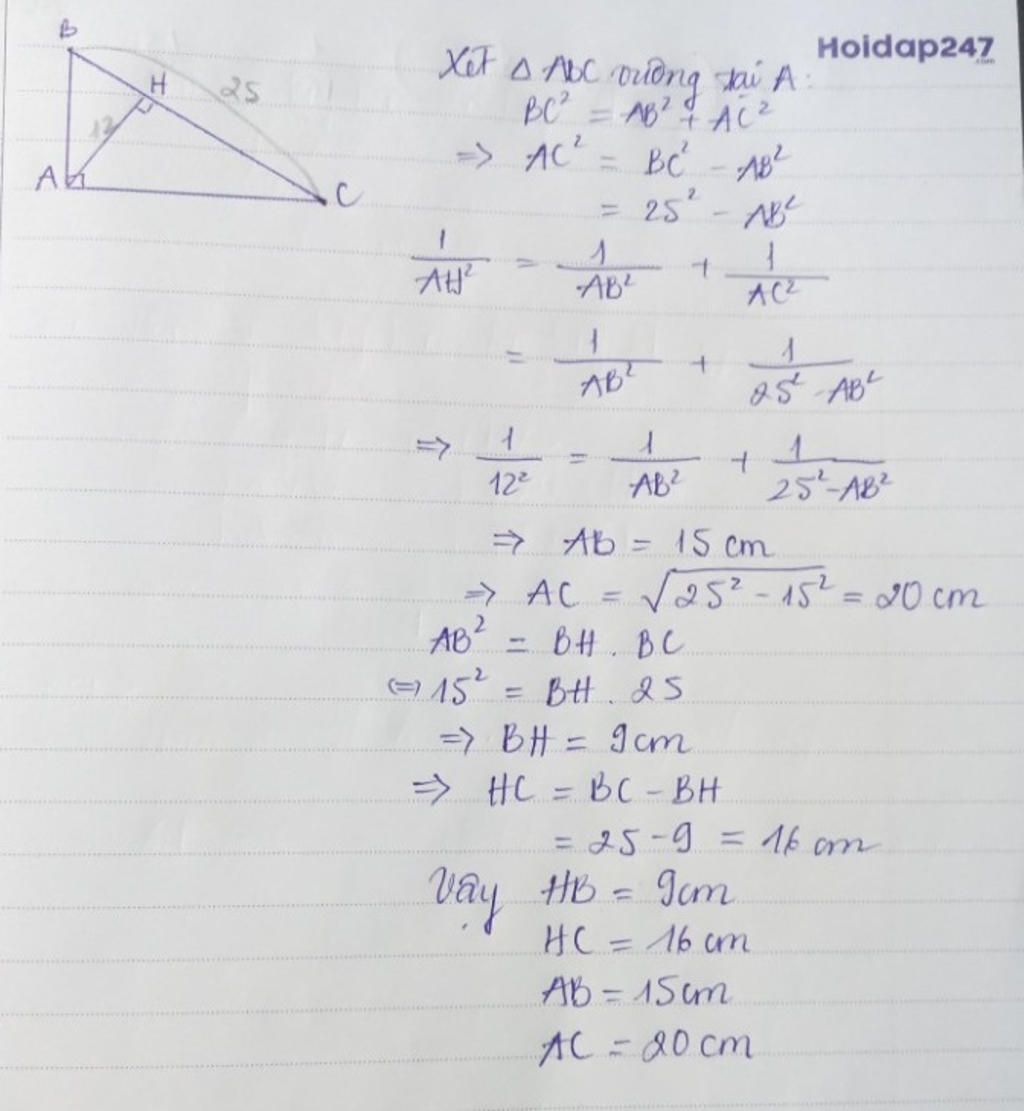 B
H
25
12
A
C
Hoidap247
.com
Xét Δ ABC vuông tại A:
BC² = AB² + AC²
=> AC² = BC² - AB²
= 25² - AB²
1/AH² = 1/AB² + 1/AC²
= 1/AB² + 1/(25² - AB²)
=> 1/12² = 1/AB² + 1/(25² - AB²)
=> AB = 15 cm
=> AC = √(25² - 15²) = 20 cm
AB² = BH . BC
(=) 15² = BH . 25
=> BH = 9cm
=> HC = BC - BH
= 25 - 9 = 16 cm
Vậy HB = 9cm
HC = 16 cm
AB = 15cm
AC = 20 cm